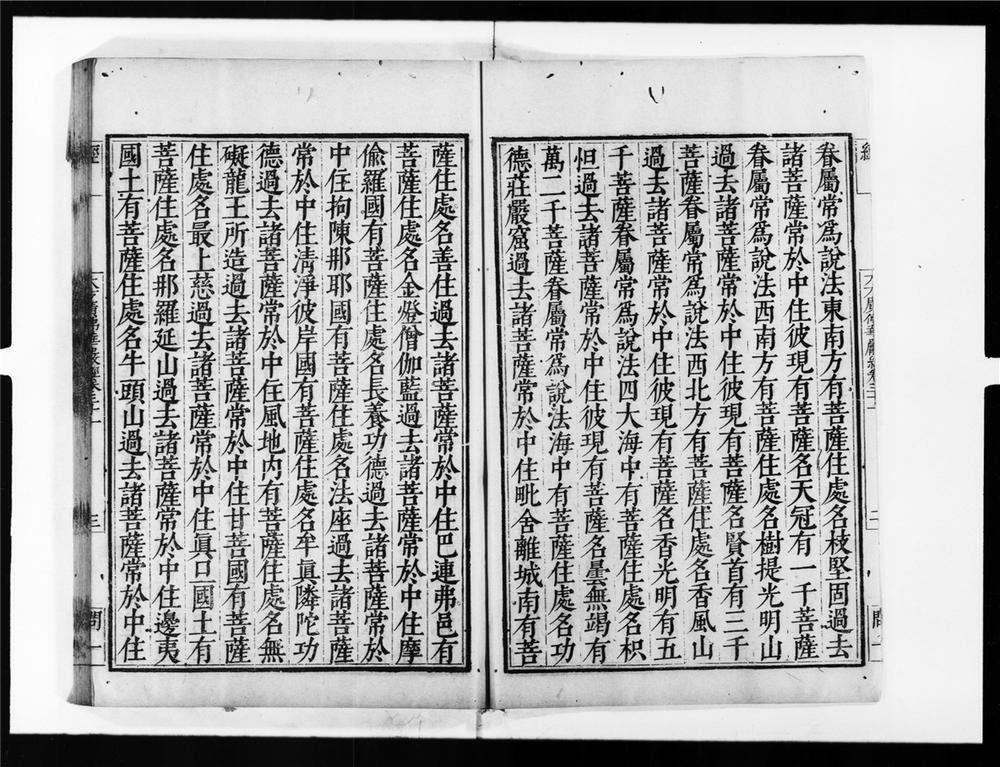 眷屬常爲說法東南方有菩薩住處名枝堅固過去
諸菩薩常於中住彼現有菩薩名天冠有一千菩薩
眷屬常爲說法西南方有菩薩住處名樹提光明山
過去諸菩薩常於中住彼現有菩薩名賢首有三千
菩薩眷屬常爲說法西北方有菩薩住處名香風山
過去諸菩薩常於中住彼現有菩薩名香光明有五
千菩薩眷屬常爲說法四大海中有菩薩住處名枳
怛過去諸菩薩常於中住彼現有菩薩名曇無竭有
萬二千菩薩眷屬常爲說法海中有菩薩住處名功
德莊嚴窟過去諸菩薩常於中住毗舍離城南有菩
薩住處名善住過去諸菩薩常於中住巴連弗邑有
菩薩住處名金燈僧伽藍過去諸菩薩常於中住摩
偷羅國有菩薩住處名長養功德過去諸菩薩常於
中住拘陳那耶國有菩薩住處名法座過去諸菩薩
常於中住清淨彼岸國有菩薩住處名牟眞隣陀功
德過去諸菩薩常於中住風地內有菩薩住處名無
礙龍王所造過去諸菩薩常於中住甘菩國有菩薩
住處名最上慈過去諸菩薩常於中住眞旦國土有
菩薩住處名那羅延山過去諸菩薩常於中住邊夷
國土有菩薩住處名牛頭山過去諸菩薩常於中住
經
三